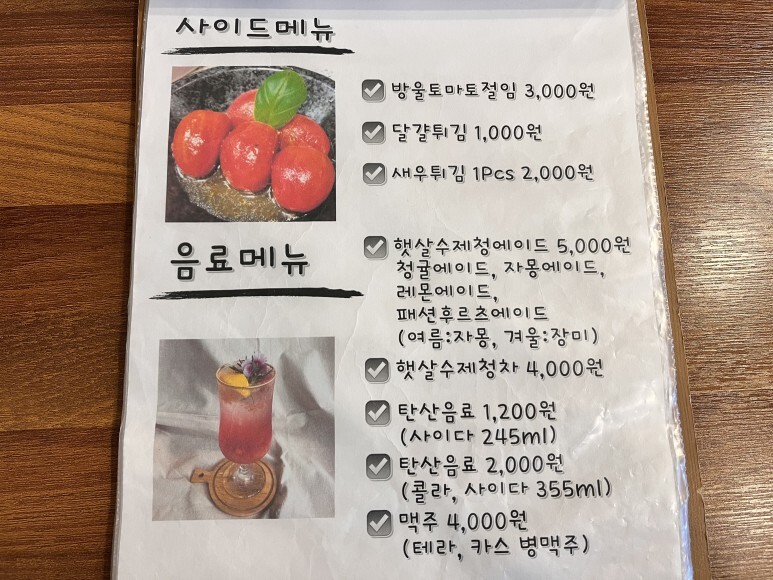 사이드메뉴
방울토마토절임 3,000원
달걀튀김 1,000원
새우튀김 1Pcs 2,000원
음료메뉴
햇살수제청에이드 5,000원
청귤에이드, 자몽에이드,
레몬에이드,
패션후르츠에이드
(여름:자몽, 겨울:장미)
햇살수제청차 4,000원
탄산음료 1,200원
(사이다 245ml)
탄산음료 2,000원
(콜라, 사이다 355ml)
맥주 4,000원
(테라, 카스 병맥주)